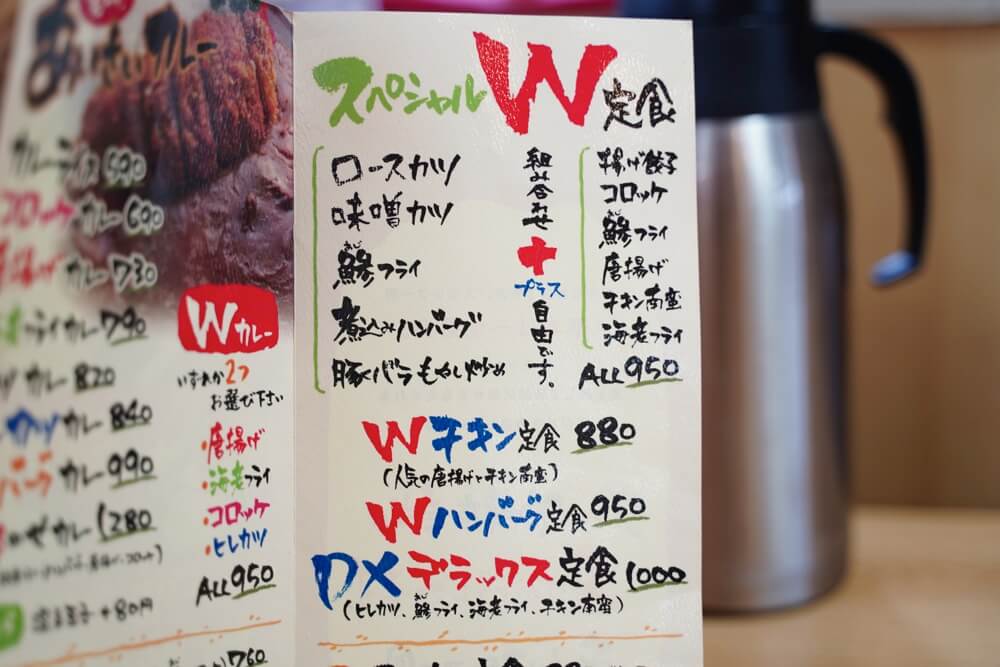 カレー
カレーライス 590
コロッケカレー 690
カレー 730
フライカレー 790
カレー 820
カツカレー 840
カレー 990
カレー 1280
+80円
760
Wカレー
いずれか2つ
お選び下さい
・唐揚げ
・海老フライ
・コロッケ
・ヒレカツ
ALL 950
スペシャルW定食
ロースカツ
味噌カツ
鯵フライ
あじ
煮込みハンバーグ
豚バラもやし炒め
組み合わせ
+
プラス
自由です。
揚げ餃子
コロッケ
鯵フライ
あじ
唐揚げ
チキン南蛮
海老フライ
ALL 950
Wチキン定食 880
(人気の唐揚げとチキン南蛮)
Wハンバーグ定食 950
DXデラックス定食 1000
(ヒレカツ、鯵フライ、海老フライ、チキン南蛮)
あじ
定食